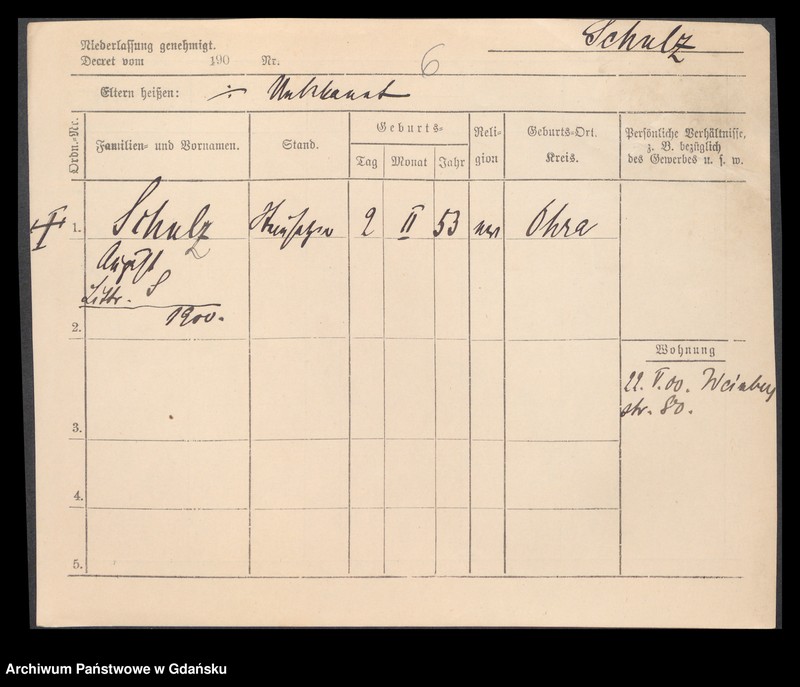 Schulz
Niederlassung genehmigt.
Decret vom 190 Nr. 6
Eltern heißen: Unbekannt
Ordn.-Nr.
Familien- und Vornamen.
Stand.
Geburts-
Tag
Monat
Jahr
Reli-
gion
Geburts-Ort.
Kreis.
Persönliche Verhältnisse,
z. B. bezüglich
des Gewerbes u. s. w.
1. Schulz 2 II 53 Ohra
August
Littr. S
1900.
2.
Wohnung
22. V. 00. Weinberg
str. 80.
3.
4.
5.
Archiwum Państwowe w Gdańsku